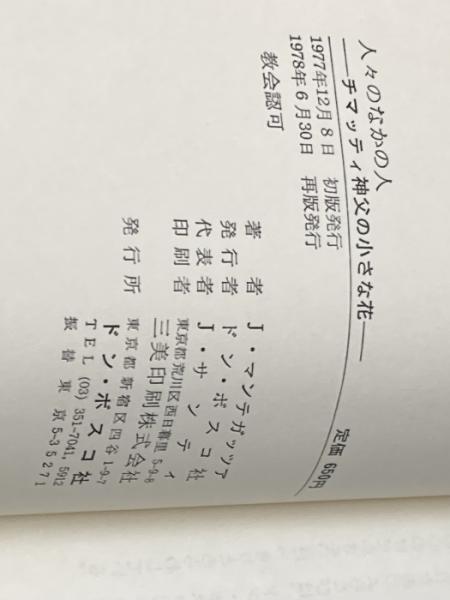 人々のなかの人
——チマッティ神父の小さな花——
1977年12月8日 初版発行
1978年6月30日 再版発行
定価 650円
教会認可
著者 J・マンテガッツァ
発行者 ドン・ボスコ社
代表者 J・サンティ
東京都荒川区西日暮里 5-9-8
印刷者 三美印刷株式会社
東京都新宿区四谷 1-9-7
発行所 ドン・ボスコ社
TEL (03) 351-7041, 5912
振替東京 5-35271